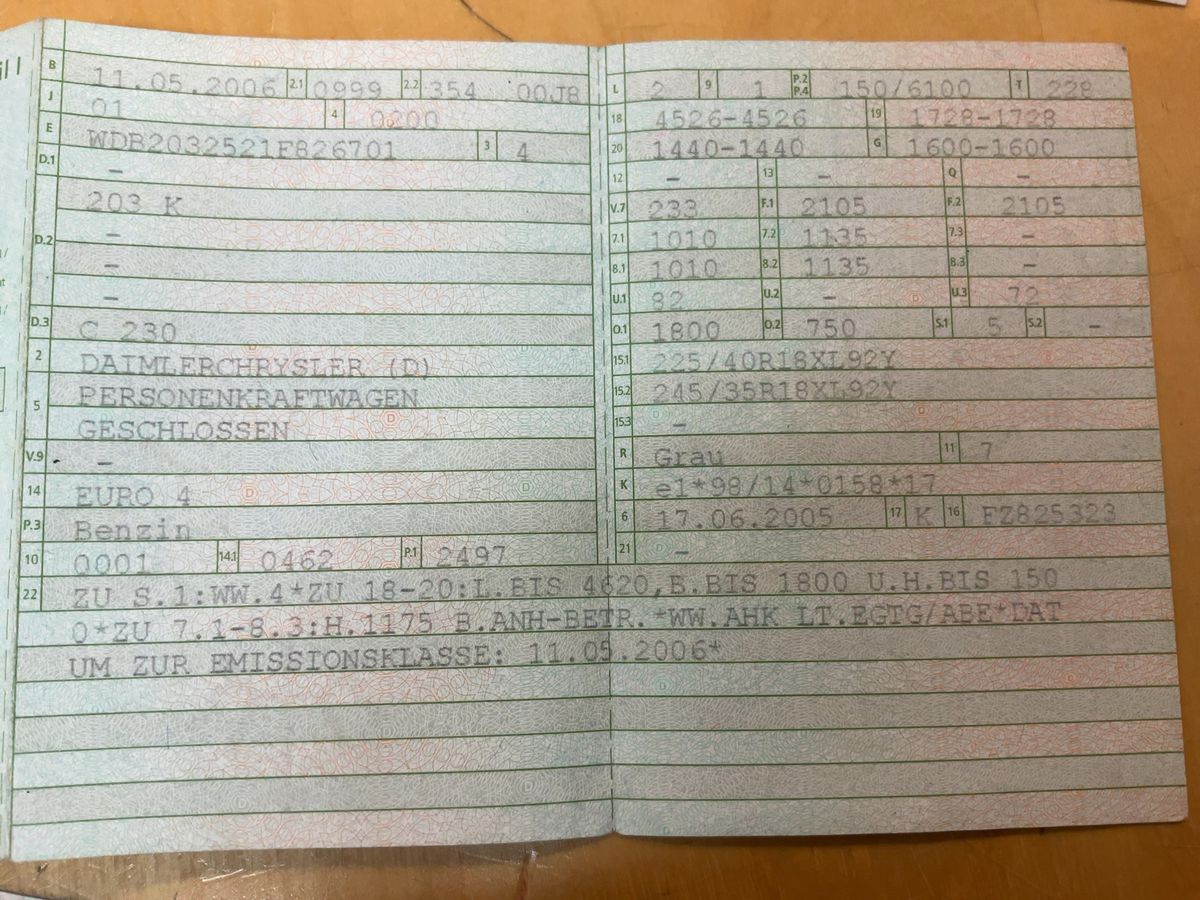 B 11.05.2006 2.1 0999 2.2 354 00J8
J 01 4 0200
E WDB2032521F826701 3 4
D.1 -
D.2 203 K
-
-
-
D.3 C 230
2 DAIMLERCHRYSLER (D)
5 PERSONENKRAFTWAGEN
GESCHLOSSEN
V.9 -
14 EURO 4
P.3 Benzin
10 0001 14.1 0462 P.1 2497
L 2 9 1 P.2 P.4 150/6100 T 228
18 4526-4526 19 1728-1728
20 1440-1440 G 1600-1600
12 - 13 - Q -
V.7 233 F.1 2105 F.2 2105
7.1 1010 7.2 1135 7.3 -
8.1 1010 8.2 1135 8.3 -
U.1 82 U.2 - U.3 72
O.1 1800 O.2 750 S.1 5 S.2 -
15.1 225/40R18XL92Y
15.2 245/35R18XL92Y
15.3 -
R Grau 11 7
K e1*98/14*0158*17
6 17.06.2005 17 K 16 FZ825323
21 -
22 ZU S.1:WW.4*ZU 18-20:L.BIS 4620,B.BIS 1800 U.H.BIS 150
0*ZU 7.1-8.3:H.1175 B.ANH-BETR.*WW.AHK LT.EGTG/ABE*DAT
UM ZUR EMISSIONSKLASSE: 11.05.2006*